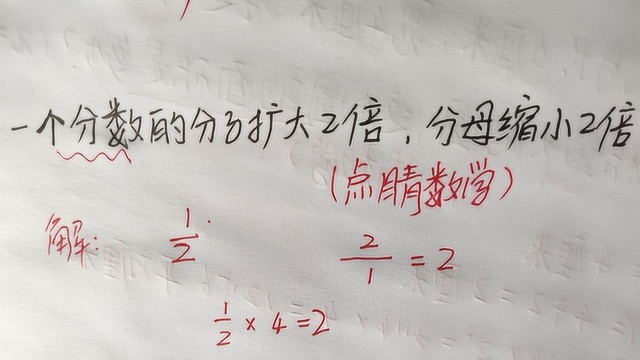 一个分数的分子扩大2倍，分母缩小2倍
（点睛数学）
解： 1/2 2/1 = 2
1/2 × 4 = 2